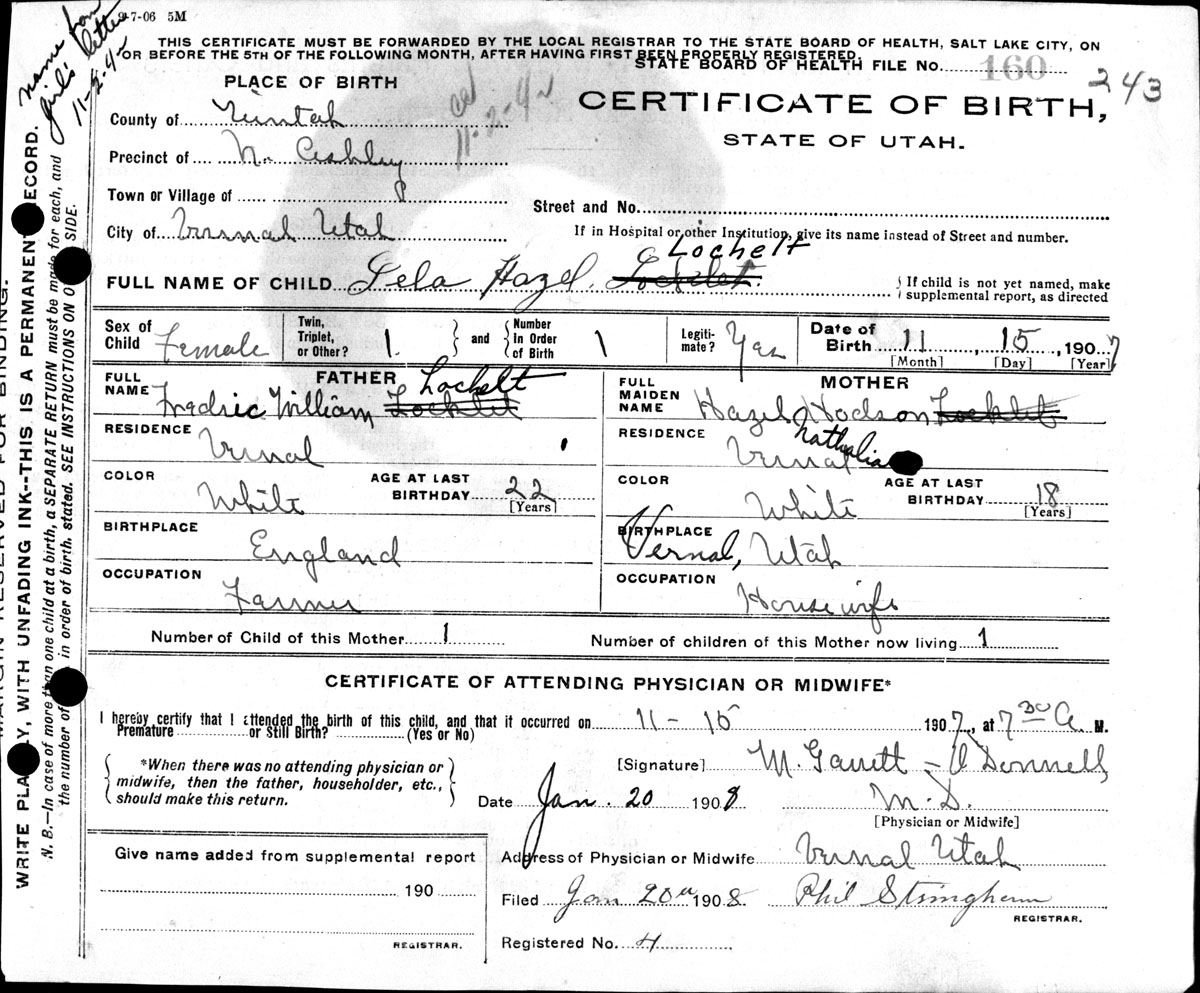 9-7-06 5M
THIS CERTIFICATE MUST BE FORWARDED BY THE LOCAL REGISTRAR TO THE STATE BOARD OF HEALTH, SALT LAKE CITY, ON
OR BEFORE THE 5TH OF THE FOLLOWING MONTH, AFTER HAVING FIRST BEEN PROPERLY REGISTERED.
STATE BOARD OF HEALTH FILE No. 160
243
name from
girl's letter
11-2-42
PLACE OF BIRTH
11-2-42
CERTIFICATE OF BIRTH,
STATE OF UTAH.
County of Uintah
Precinct of N. Ashley
Town or Village of
Street and No.
City of Vernal Utah
If in Hospital or other Institution, give its name instead of Street and number.
Lochelt
FULL NAME OF CHILD Lela Hazel
If child is not yet named, make
supplemental report, as directed
Sex of Child Female
Twin, Triplet, or Other? 1
and
Number In Order of Birth 1
Legitimate? Yes
Date of Birth 11, 15, 1907
[Month] [Day] [Year]
FATHER
FULL NAME Fredric William Lochelt
RESIDENCE Vernal
COLOR White
AGE AT LAST BIRTHDAY 22
[Years]
BIRTHPLACE England
OCCUPATION Farmer
MOTHER
FULL MAIDEN NAME Hazel Hodson
Nathalia
RESIDENCE Vernal
COLOR White
AGE AT LAST BIRTHDAY 18
[Years]
BIRTHPLACE Vernal, Utah
OCCUPATION Housewife
Number of Child of this Mother 1
Number of children of this Mother now living 1
CERTIFICATE OF ATTENDING PHYSICIAN OR MIDWIFE*
I hereby certify that I attended the birth of this child, and that it occurred on 11-15 1907, at 7 30 A. M.
Premature or Still Birth? (Yes or No)
*When there was no attending physician or
midwife, then the father, householder, etc.,
should make this return.
[Signature] M. Garrett-O'Donnell,
Date Jan. 20 1908 M.D.
[Physician or Midwife]
Give name added from supplemental report
190
REGISTRAR.
Address of Physician or Midwife Vernal Utah
Filed Jan 20 1908 Phil Stringham
REGISTRAR.
Registered No. 4
MARGIN RESERVED FOR BINDING.
WRITE PLAINLY, WITH UNFADING INK--THIS IS A PERMANENT RECORD.
N. B.—In case of more than one child at a birth, a SEPARATE RETURN must be made for each, and
the number of in order of birth, stated. SEE INSTRUCTIONS ON SIDE.